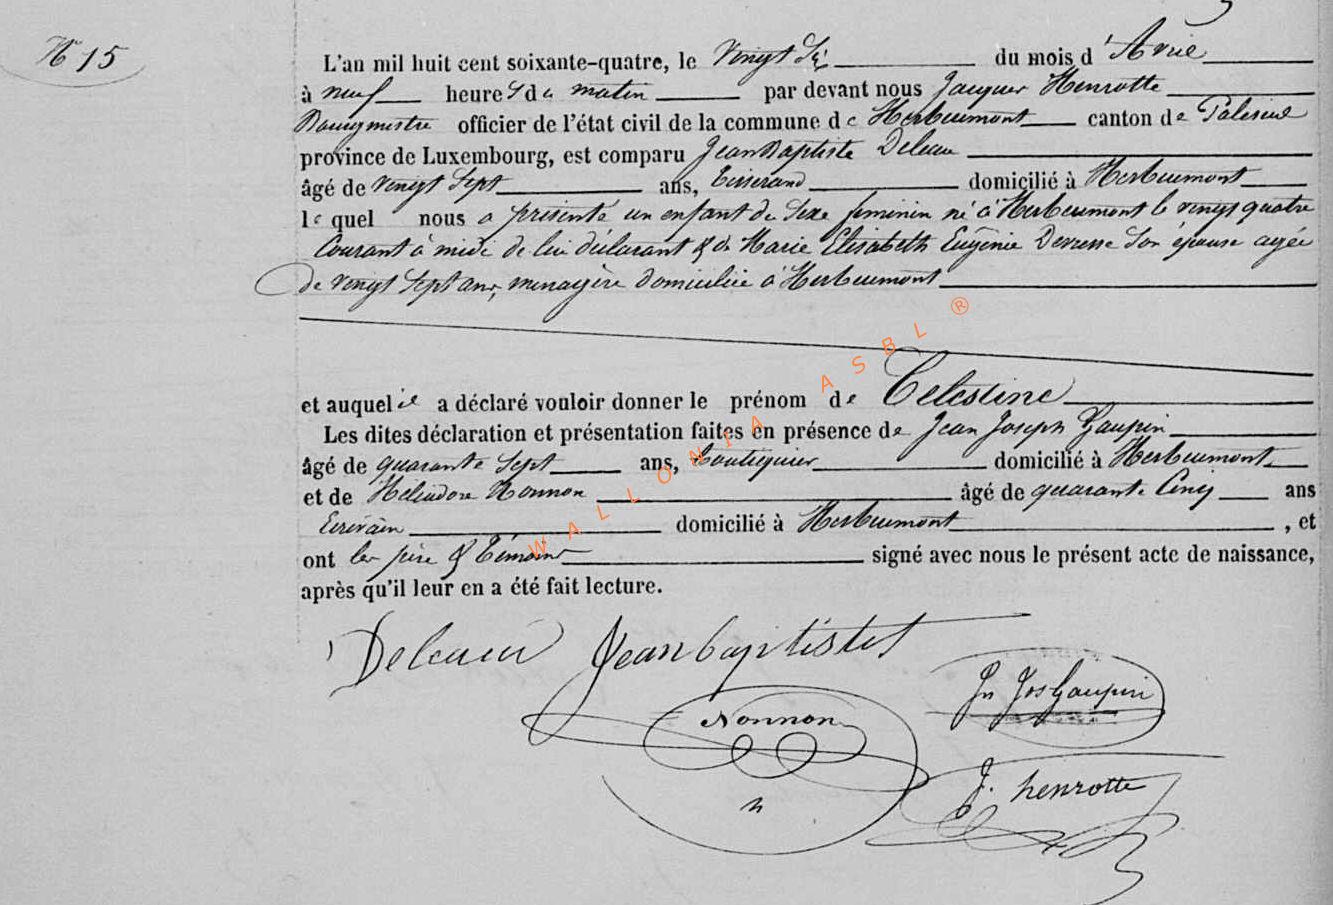 N° 15
L'an mil huit cent soixante-quatre, le vingt Six du mois d'Avril
à neuf heures du matin par devant nous Jacques Henrotte
Bourgmestre officier de l'état civil de la commune de Herbeumont canton de Paliseul
province de Luxembourg, est comparu Jean Baptiste Deleau
âgé de vingt Sept ans, tisserand domicilié à Herbeumont
lequel nous a présenté un enfant du Sexe féminin né à Herbeumont le vingt quatre
Courant à midi de lui déclarant & de Marie Elisabeth Eugénie Son épouse agée
de vingt Sept ans, menagère domiciliée à Herbeumont
et auquel il a déclaré vouloir donner le prénom de Celestine
Les dites déclaration et présentation faites en présence de Jean Joseph Gaupin
âgé de quarante Sept ans, boutiquier domicilié à Herbeumont
et de Héliodore Nonnon âgé de quarante Cinq ans
Ecrivain domicilié à Herbeumont, et
ont les père & témoins signé avec nous le présent acte de naissance,
après qu'il leur en a été fait lecture.
Jean baptiste
Jn Jos Gaupin
Nonnon
J. henrotte
WALLONIA ASBL ®